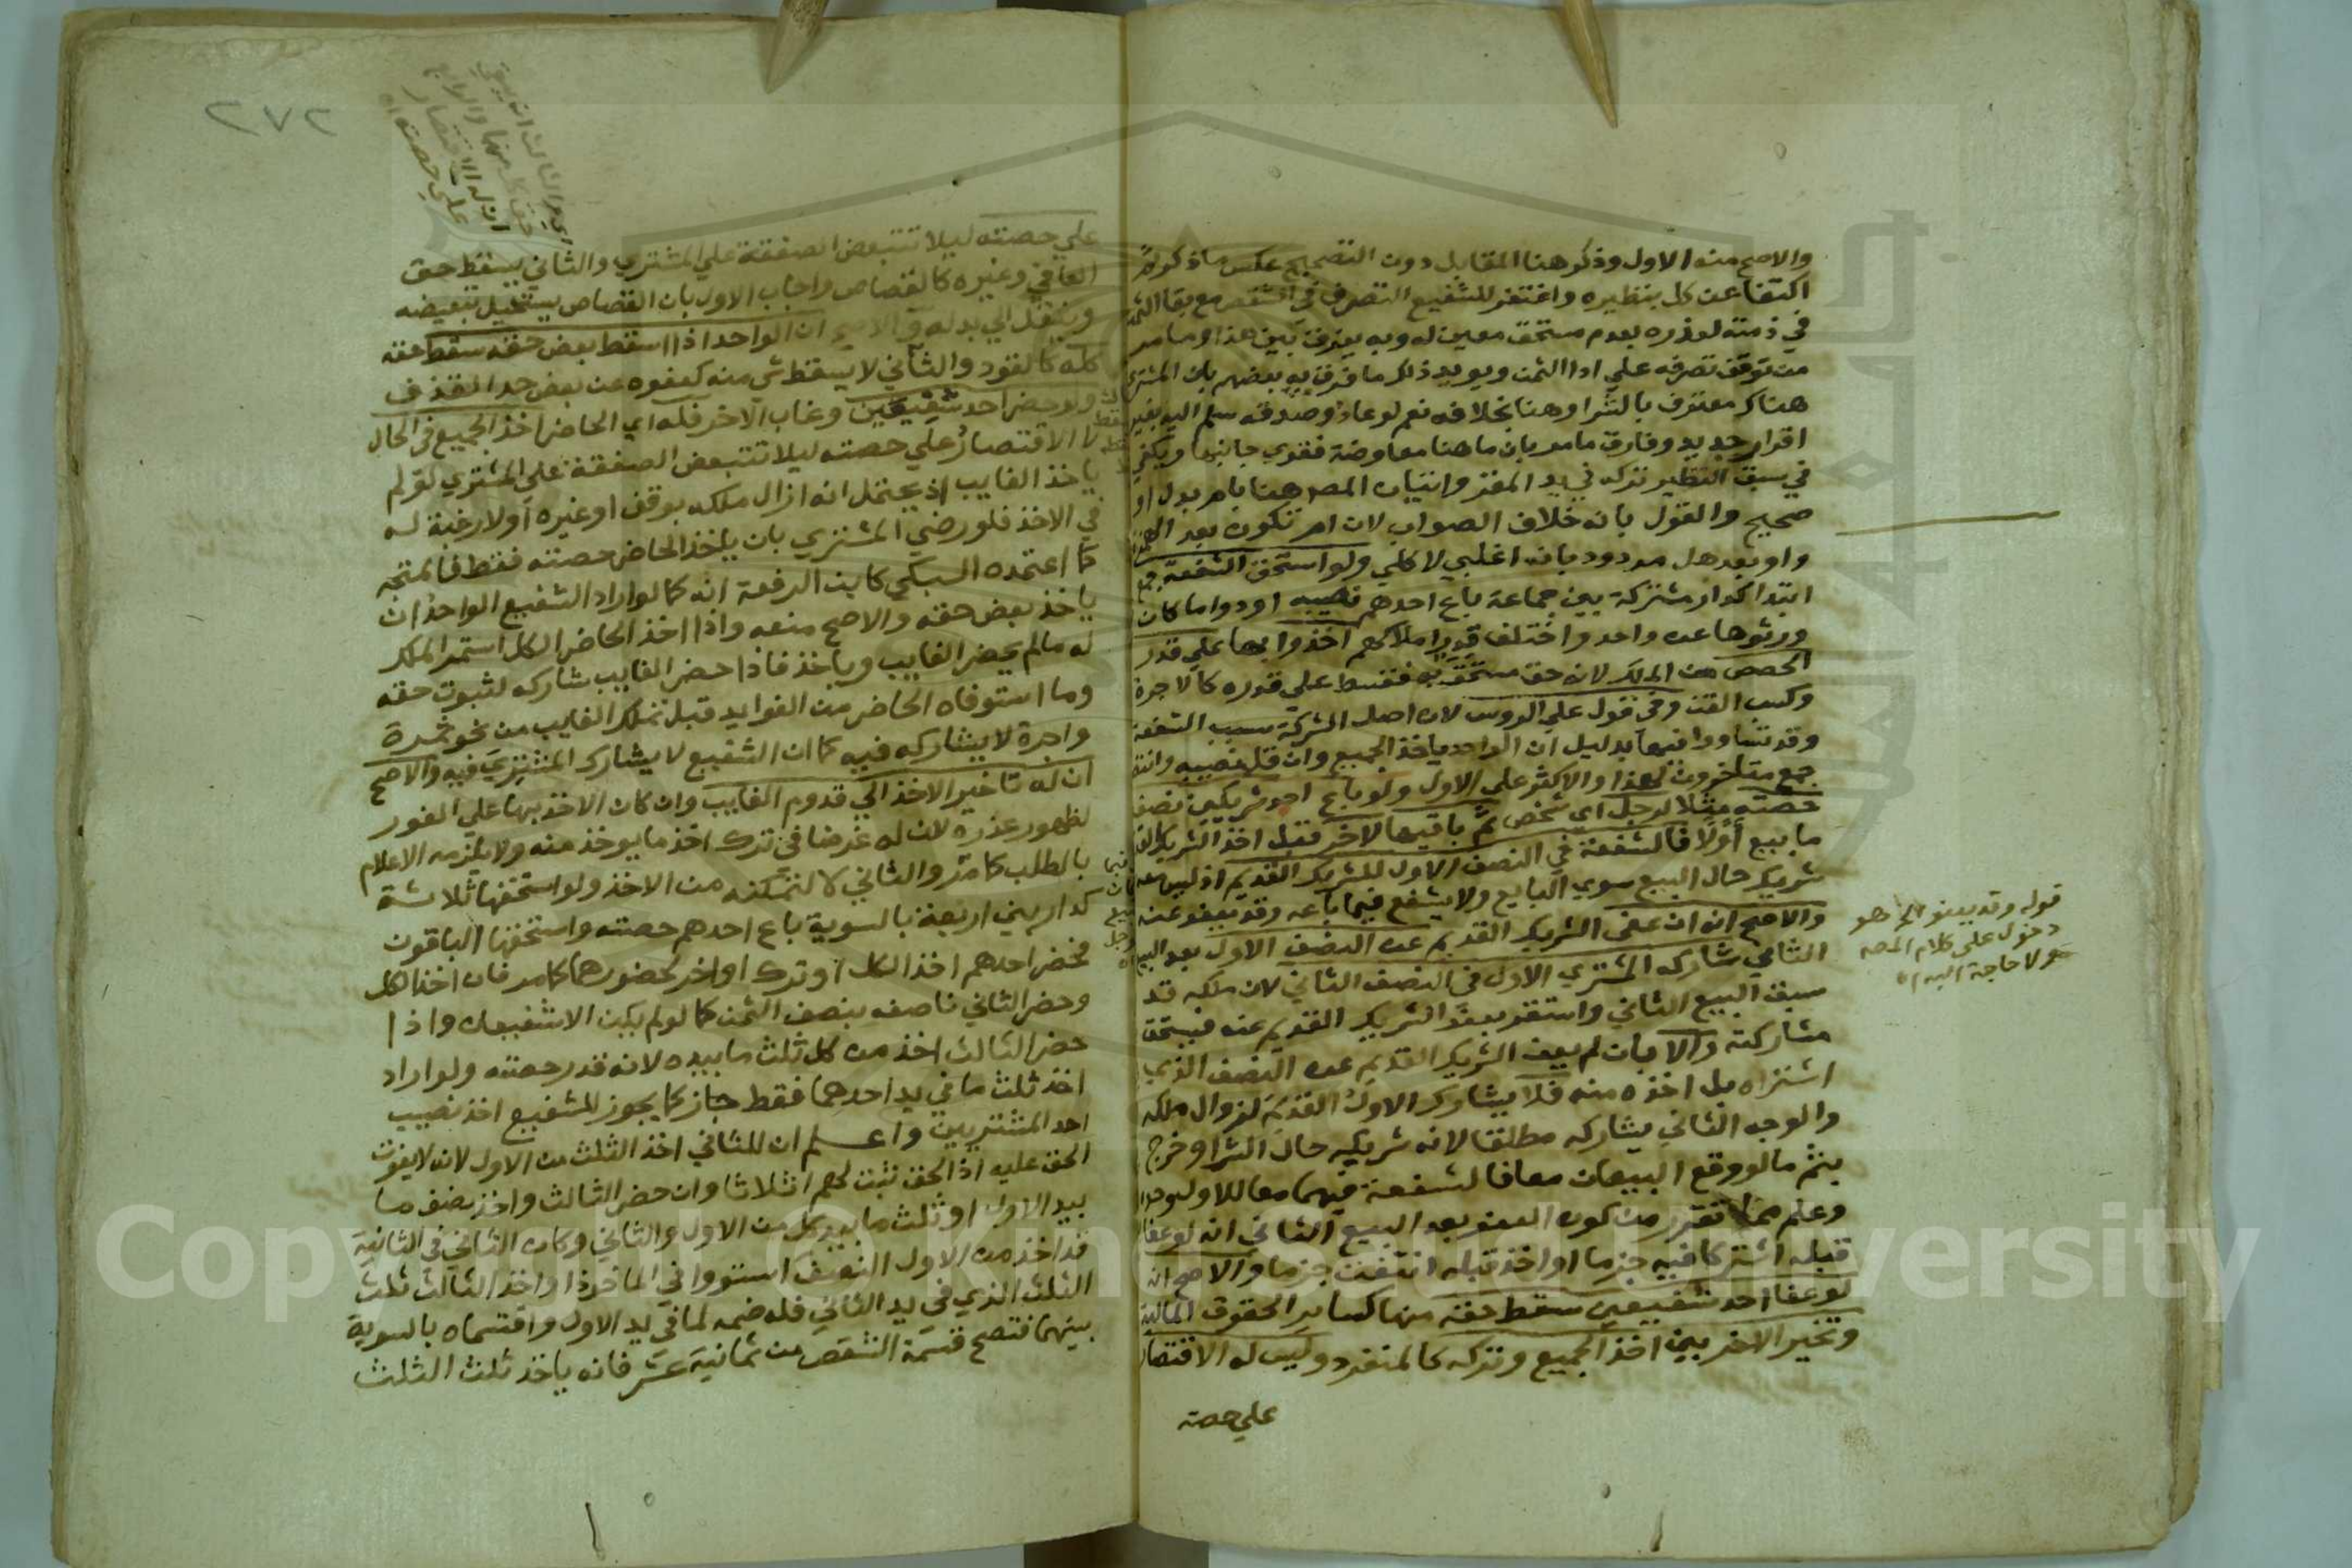 والاصح منه الاول وذكر هنا المقابل دون التصحيح عكس ما ذكره ثم
اكتفا عن كل بنظيره واغتفر للشفيع التصرف في الشقص مع بقا الثمن
في ذمته لعذره بعدم مستحق معين له وبه يفرق بين هذا وما مر
من توقف تصرفه علي ادا الثمن ويويد ذلك ما فرق به بعضهم بان المشتري
هناك معترف بالشرا وهنا بخلافه نعم لو عاد وصدقه سلم اليه بغير
اقرار جديد وفارق ما مر بان ما هنا معاوضة فقوي جانبها ويكفي
في سبق النظير تركه في يد المقر واتيان المص هنا بام بدل او
صحيح والقول بانه خلاف الصواب لان ام تكون بعد الهمزة
واو بعد هل مردود بانه اغلبي لا كلي ولو استحق الشفعة جمع
ابتدا كدار مشتركة بين جماعة باع احدهم نصيبه او دواما كان
ورثوها عن واحد واختلف قدر املاكهم اخذوا بها علي قدر
الحصص من الملك لانه حق مستحق به فقسط علي قدره كالاجرة
وكسب القن وفي قول علي الروس لان اصل الشركة سبب الشفعة
وقد تساووا فيها بدليل ان الواحد ياخذ الجميع وان قل نصيبه وانتصر
جمع متاخرون لهذا والاكثر علي الاول ولو باع احد شريكين نصف
حصته مثلا لرجل اي شخص ثم باقيها لاخر قبل اخذ الشريك القديم
ما بيع اولا فالشفعة في النصف الاول للشريك القديم اذ ليس معه
شريك حال البيع سوي البايع ولا يشفع فيما باعه وقد يعفو عنه
والاصح انه ان عفي الشريك القديم عن النصف الاول بعد البيع
الثاني شاركه المشتري الاول في النصف الثاني لان ملكه قد
سبق البيع الثاني واستقر بعفو الشريك القديم عنه فيستحق
مشاركته والا بان لم يعف الشريك القديم عن النصف الذي
اشتراه بل اخذه منه فلا يشارك الاول القديم لزوال ملكه
والوجه الثاني يشاركه مطلقا لانه شريكه حال الشرا وخرج
بثم ما لو وقع البيعان معا فالشفعة فيهما معا للاول وحده
وعلم مما تقرر من كون العفو بعد البيع الثاني انه لو عفا
قبله اشتركا فيه جزما او اخذ قبله انتفت جزما والاصح انه
لو عفا احد شفيعين سقط حقه منها كساير الحقوق المالية
وتخير الاخر بين اخذ الجميع وتركه كالمنفرد وليس له الاقتصار
علي حصته
قوله وقد يعفو الخ هو
دخول علي كلام المص
ولا حاجة اليه اه
٢٧٢
علي حصته ليلا تتبعض الصفقة علي المشتري والثاني يسقط حق
العافي وغيره كالقصاص واجاب الاول بان القصاص يستحيل تبعيضه
وينتقل الي بدله والاصح ان الواحد اذا اسقط بعض حقه سقط حقه
كله كالقود والثاني لا يسقط شي منه كعفوه عن بعض حد القذف
ولو حضر احد شفيعين وغاب الاخر فله اي الحاضر اخذ الجميع في الحال
لا الاقتصار علي حصته ليلا تتبعض الصفقة علي المشتري لو لم
ياخذ الغايب اذ يحتمل انه ازال ملكه بوقف او غيره او لا رغبة له
في الاخذ فلو رضي المشتري بان ياخذ الحاضر حصته فقط فالمتجه
كما اعتمده السبكي كابن الرفعة انه كما لو اراد الشفيع الواحد ان
ياخذ بعض حقه والاصح منعه واذا اخذ الحاضر الكل استمر الملك
له ما لم يحضر الغايب وياخذ فاذا حضر الغايب شاركه لثبوت حقه
وما استوفاه الحاضر من الفوايد قبل تملك الغايب من نحو ثمرة
واجرة لا يشاركه فيه كما ان الشفيع لا يشارك المشتري فيه والاصح
ان له تاخير الاخذ الي قدوم الغايب وان كان الاخذ بها علي الفور
لظهور عذره لان له غرضا في ترك اخذ ما يوخذ منه ولا يلزمه الاعلام
بالطلب كما مر والثاني لا لتمكنه من الاخذ ولو استحقها ثلاثة
كدار بين اربعة بالسوية باع احدهم حصته واستحقها الباقون
فحضر احدهم اخذ الكل او ترك او اخر لحضورهما كما مر فان اخذ الكل
وحضر الثاني ناصفه بنصف الثمن كما لو لم يكن الا شفيعان واذا
حضر الثالث اخذ من كل ثلث ما بيده لانه قدر حصته ولو اراد
اخذ ثلث ما في يد احدهما فقط جاز كما يجوز للشفيع اخذ نصيب
احد المشتريين واعلم ان للثاني اخذ الثلث من الاول لانه لا يفوت
الحق عليه اذ الحق ثبت لهم اثلاثا وان حضر الثالث واخذ نصف ما
بيد الاول او ثلث ما بيد كل من الاول والثاني وكان الثاني في الثانية
قد اخذ من الاول النصف استووا في الماخوذ او اخذ الثالث ثلث
الثلث الذي في يد الثاني فله ضمه لما في يد الاول واقتسماه بالسوية
بينهما فتصح قسمة الشقص من ثمانية عشر فانه ياخذ ثلث الثلث
علي حصته اه